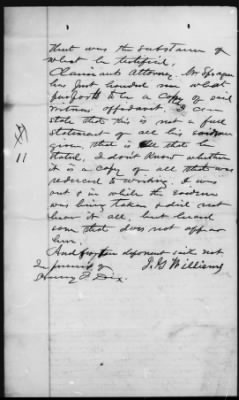 that was the substance of
what he testified.
Claimants Attorney Mr Sprague
has just handed me what
purports to be a copy of said
witness affidavit. I can
state that this is not a full
statement of all his evidence
given, that is all that he
stated, I don't know whether
it is a copy of all that was
reduced to writing. I was
out & in while the evidence
was being taken & did not
hear it all, but heard
some that does not appear
here.
And further deponent saith not
In presence of J. G. Williams
Harry P. Dix
11